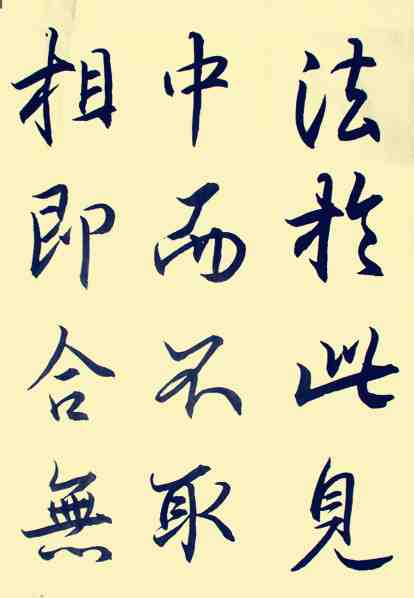 法於此見
中而不取
相即合無